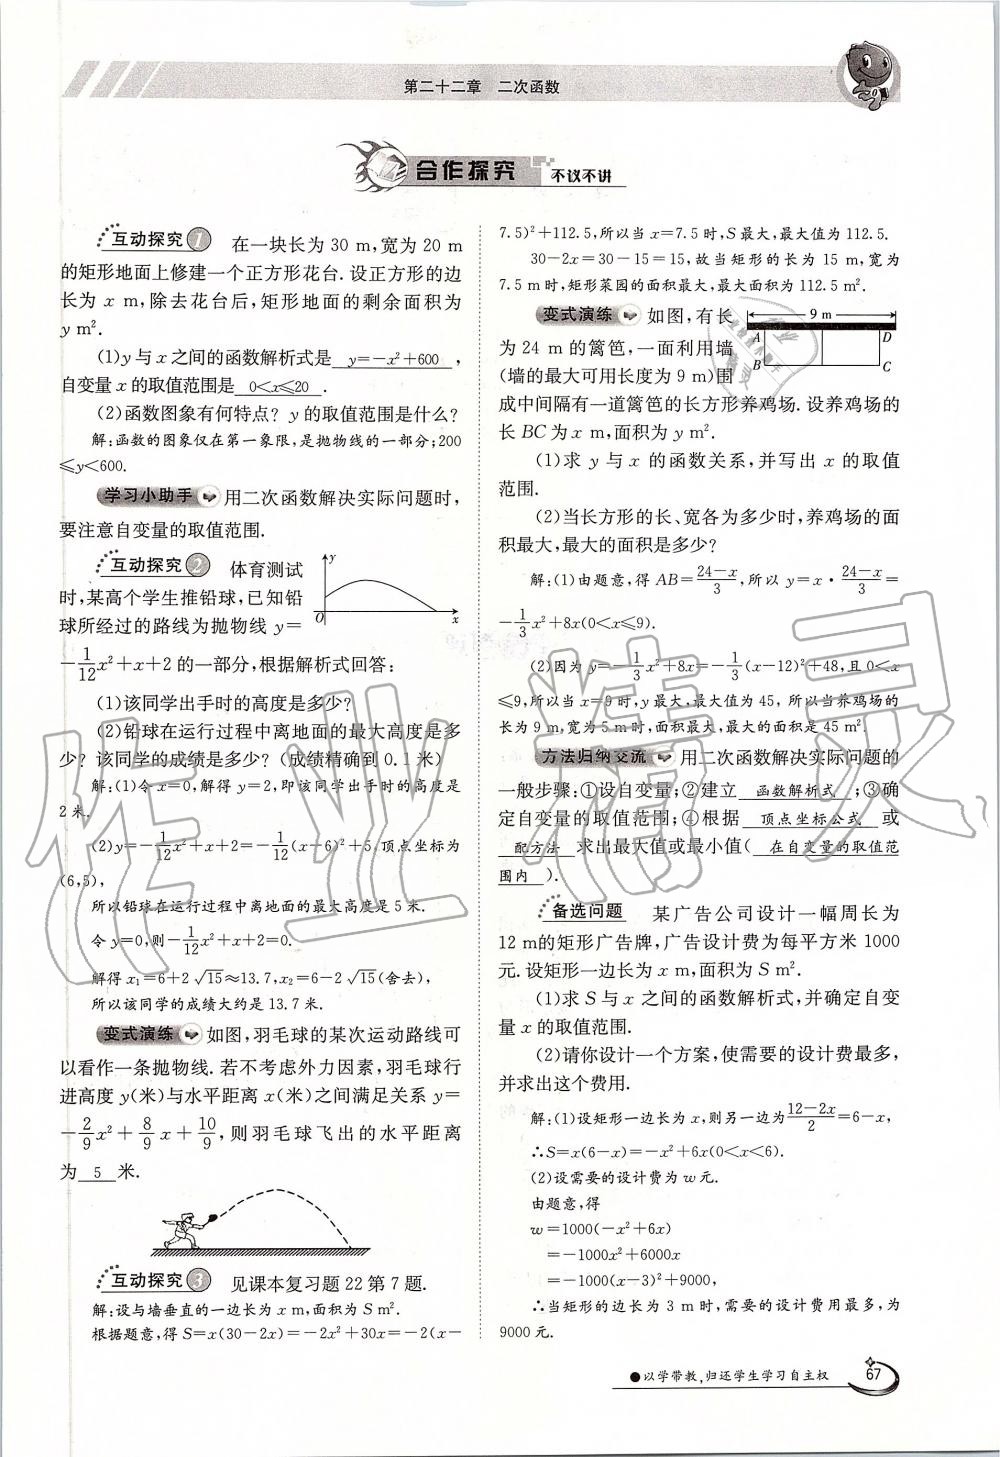 第二十二章　二次函数
合作探究 不议不讲
互动探究1 在一块长为 30 m,宽为 20 m
的矩形地面上修建一个正方形花台.设正方形的边
长为 x m,除去花台后,矩形地面的剩余面积为
y m².
(1)y 与 x 之间的函数解析式是 y=-x²+600 ,
自变量 x 的取值范围是 0<x≤20 .
(2)函数图象有何特点? y 的取值范围是什么?
解:函数的图象仅在第一象限,是抛物线的一部分;200
≤y<600.
学习小助手 用二次函数解决实际问题时,
要注意自变量的取值范围.
互动探究2 体育测试
时,某高个学生推铅球,已知铅
球所经过的路线为抛物线 y=
-1/12x²+x+2 的一部分,根据解析式回答:
y
O
x
(1)该同学出手时的高度是多少?
(2)铅球在运行过程中离地面的最大高度是多
少? 该同学的成绩是多少?(成绩精确到 0.1 米)
解:(1)令 x=0,解得 y=2,即该同学出手时的高度是
2 米.
(2)y=-1/12x²+x+2=-1/12(x-6)²+5,顶点坐标为
(6,5),
所以铅球在运行过程中离地面的最大高度是 5 米.
令 y=0,则-1/12x²+x+2=0.
解得 x₁=6+2√15≈13.7,x₂=6-2√15(舍去),
所以该同学的成绩大约是 13.7 米.
变式演练 如图,羽毛球的某次运动路线可
以看作一条抛物线.若不考虑外力因素,羽毛球行
进高度 y(米)与水平距离 x(米)之间满足关系 y=
-2/9x²+8/9x+10/9,则羽毛球飞出的水平距离
为 5 米.
互动探究3 见课本复习题 22 第 7 题.
解:设与墙垂直的一边长为 x m,面积为 S m².
根据题意,得 S=x(30-2x)=-2x²+30x=-2(x-
7.5)²+112.5,所以当 x=7.5 时,S 最大,最大值为 112.5.
30-2x=30-15=15,故当矩形的长为 15 m,宽为
7.5 m 时,矩形菜园的面积最大,最大面积为 112.5 m².
变式演练 如图,有长
为 24 m 的篱笆,一面利用墙
(墙的最大可用长度为 9 m)围
成中间隔有一道篱笆的长方形养鸡场.设养鸡场的
长 BC 为 x m,面积为 y m².
9 m
A
D
B
C
(1)求 y 与 x 的函数关系,并写出 x 的取值
范围.
(2)当长方形的长、宽各为多少时,养鸡场的面
积最大,最大的面积是多少?
解:(1)由题意,得 AB=(24-x)/3,所以 y=x·(24-x)/3=
-1/3x²+8x(0<x≤9).
(2)因为 y=-1/3x²+8x=-1/3(x-12)²+48,且 0<x
≤9,所以当 x=9 时,y 最大,最大值为 45,所以当养鸡场的
长为 9 m,宽为 5 m 时,面积最大,最大的面积是 45 m².
方法归纳交流 用二次函数解决实际问题的
一般步骤:①设自变量;②建立 函数解析式 ;③确
定自变量的取值范围;④根据 顶点坐标公式 或
配方法 求出最大值或最小值( 在自变量的取值范
围内 ).
备选问题 某广告公司设计一幅周长为
12 m的矩形广告牌,广告设计费为每平方米 1000
元.设矩形一边长为 x m,面积为 S m².
(1)求 S 与 x 之间的函数解析式,并确定自变
量 x 的取值范围.
(2)请你设计一个方案,使需要的设计费最多,
并求出这个费用.
解:(1)设矩形一边长为 x,则另一边为(12-2x)/2=6-x,
∴S=x(6-x)=-x²+6x(0<x<6).
(2)设需要的设计费为 w 元.
由题意,得
w=1000(-x²+6x)
=-1000x²+6000x
=-1000(x-3)²+9000,
∴当矩形的边长为 3 m 时,需要的设计费用最多,为
9000 元.
●以学带教,归还学生学习自主权
67
作业精灵